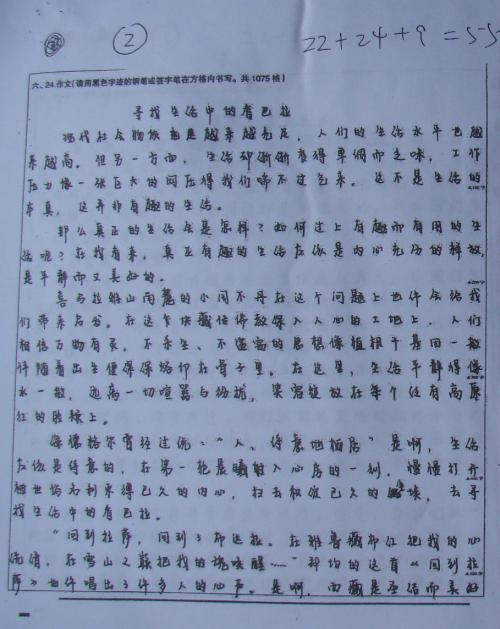 ②
22+24+9=55
六、24.作文(请用黑色字迹的钢笔或签字笔在方格内书写。共1075格)
寻找生活中的香巴拉
现代社会物质也是越来越充足，人们的生活水平也越
来越高。但另一方面，生活却渐渐变得单调而乏味，工作
压力像一张巨大的网压得我们喘不过气来。这不是生活的
本真，这并非有趣的生活。
那么真正的生活会是怎样？如何过上有趣而有用的生
活呢？在我看来，真正有趣的生活应该是内心充沛的释放，
是平静而又美好的。
喜马拉雅山南麓的小国不丹在这个问题上也许会给我
们带来启发。在这个块藏传佛教深入人心的土地上，人们
相信万物有灵。不杀生、不滥富的思想像植根于基因一般
伴随着出生便深深烙印在骨子里。在这里，生活平静得像
水一般，远离一切喧嚣与纷扰，笑容绽放在每个泛有高原
红的脸颊上。
海德格尔曾经过说："人，诗意地栖居"是啊，生活
应该是诗意的，在第一抹晨曦射入心房的一刻，慢慢打开
被世俗名利束缚已久的内心，扫去积淀已久的尘埃，去寻
找生活中的香巴拉。
"回到拉萨，回到了布达拉。在雅鲁藏布江把我的心
洗清，在雪山之巅把我的魂唤醒……"郑钧的这首《回到拉
萨》也许唱出了许多人的心声。是啊，西藏是圣洁而美好